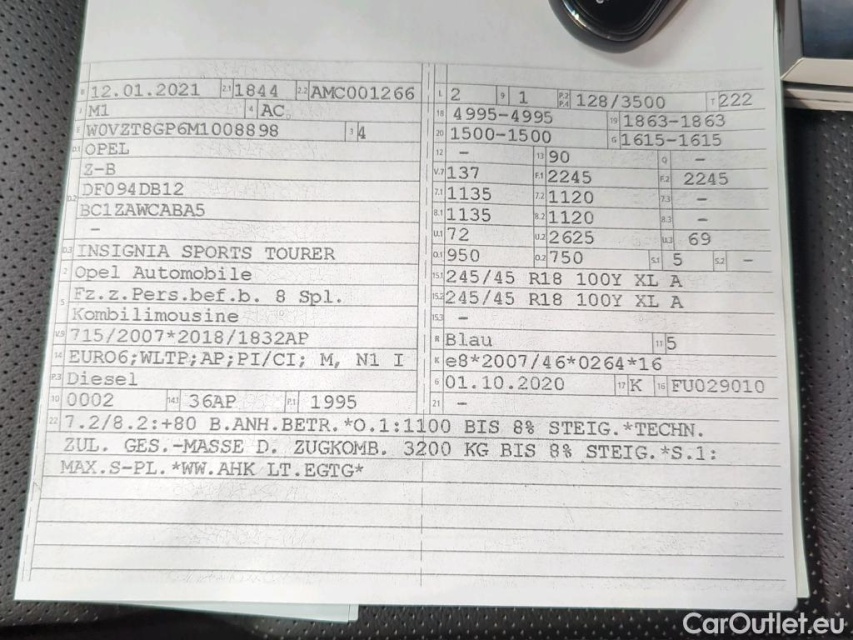 B 12.01.2021 2.1 1844 2.2 AMC001266
J M1 4 AC
E W0VZT8GP6M1008898 3 4
D.1 OPEL
D.2 Z-B
DF094DB12
BC1ZAWCABA5
–
D.3 INSIGNIA SPORTS TOURER
2 Opel Automobile
5 Fz.z.Pers.bef.b. 8 Spl.
Kombilimousine
V.9 715/2007*2018/1832AP
14 EURO6;WLTP;AP;PI/CI; M, N1 I
P.3 Diesel
10 0002 14.1 36AP P.1 1995
L 2 9 1 P.2 P.4 128/3500 T 222
18 4995-4995 19 1863-1863
20 1500-1500 G 1615-1615
12 – 13 90 Q –
V.7 137 F.1 2245 F.2 2245
7.1 1135 7.2 1120 7.3 –
8.1 1135 8.2 1120 8.3 –
U.1 72 U.2 2625 U.3 69
O.1 950 O.2 750 S.1 5 S.2 –
15.1 245/45 R18 100Y XL A
15.2 245/45 R18 100Y XL A
15.3 –
R Blau 11 5
K e8*2007/46*0264*16
6 01.10.2020 17 K 16 FU029010
21 –
22 7.2/8.2:+80 B.ANH.BETR.*O.1:1100 BIS 8% STEIG.*TECHN.
ZUL. GES.-MASSE D. ZUGKOMB. 3200 KG BIS 8% STEIG.*S.1:
MAX.S-PL.*WW.AHK LT.EGTG*
CarOutlet.eu